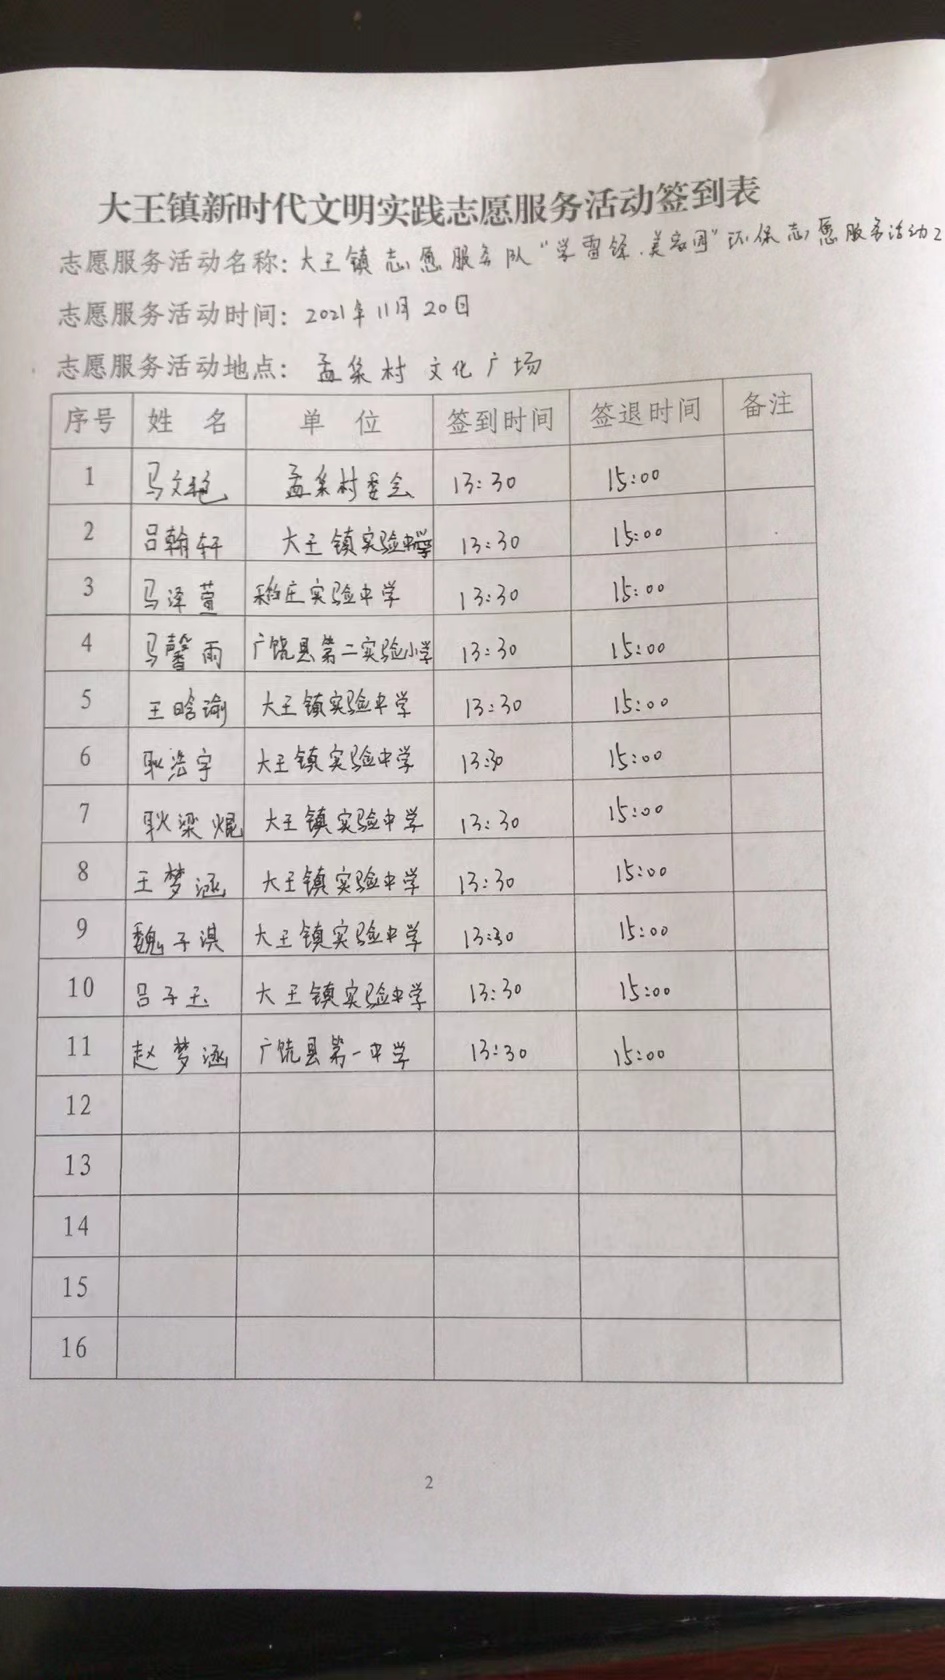 大王镇新时代文明实践志愿服务活动签到表
志愿服务活动名称：大王镇志愿服务队“学雷锋.美家园”环保志愿服务活动2
志愿服务活动时间：2021年11月20日
志愿服务活动地点：孟集村文化广场
序号 姓名 单位 签到时间 签退时间 备注
1 马文艳 孟集村委会 13:30 15:00
2 吕翰轩 大王镇实验中学 13:30 15:00
3 马泽萱 稻庄实验中学 13:30 15:00
4 马馨雨 广饶县第二实验小学 13:30 15:00
5 王晗瑜 大王镇实验中学 13:30 15:00
6 耿浩宇 大王镇实验中学 13:30 15:00
7 耿梁焜 大王镇实验中学 13:30 15:00
8 王梦涵 大王镇实验中学 13:30 15:00
9 魏子淇 大王镇实验中学 13:30 15:00
10 吕子玉 大王镇实验中学 13:30 15:00
11 赵梦涵 广饶县第一中学 13:30 15:00
12
13
14
15
16
2